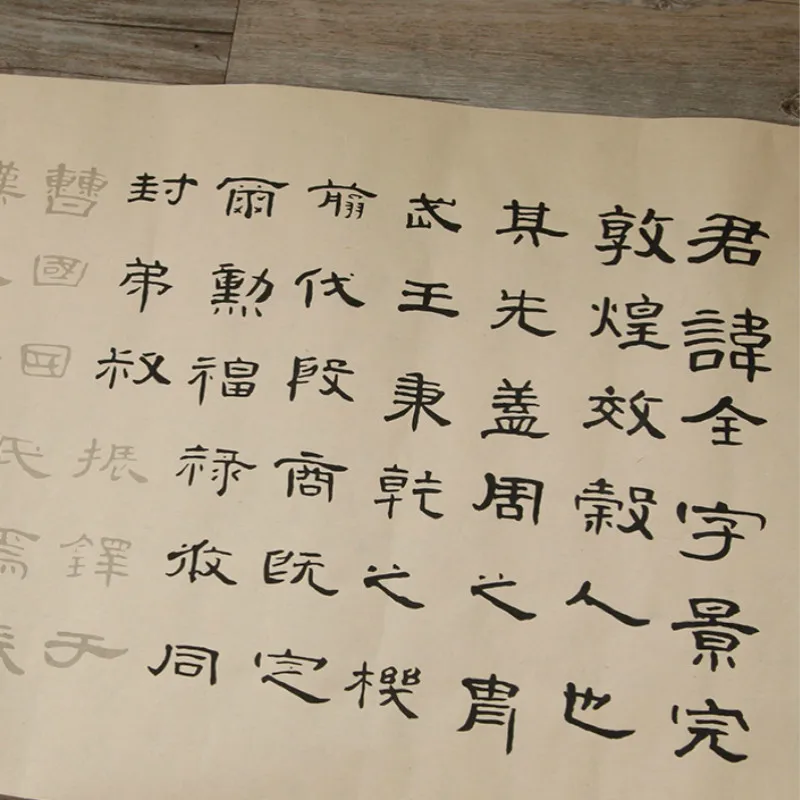 君諱全字景完
敦煌效穀人也
其先蓋周之胄
武王秉乾之機
翦伐殷商既定
爾勳福祿攸同
封弟叔振鐸于
曹國因氏焉